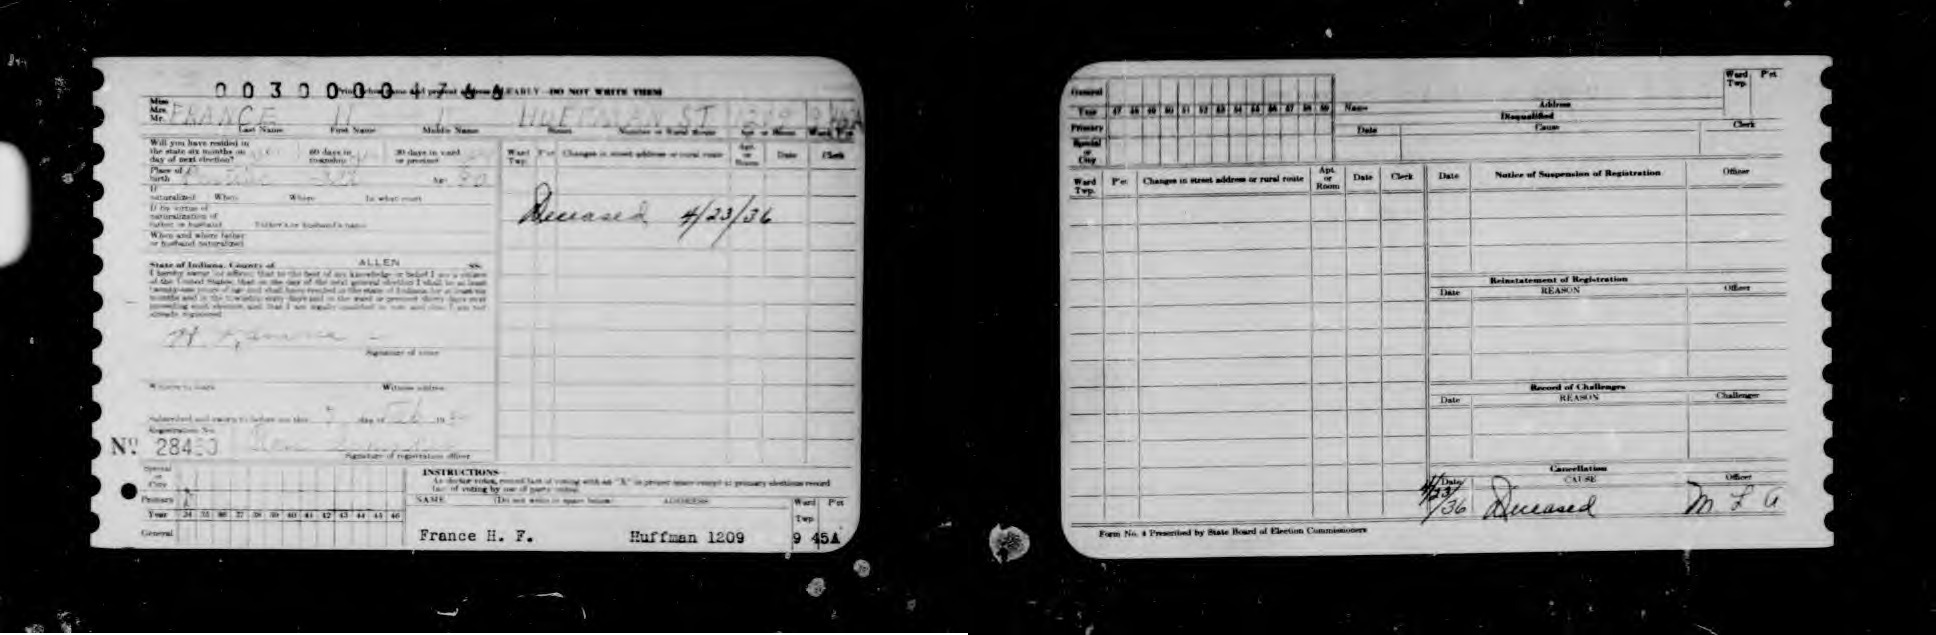 0 0 3 0 0 0 0 4 7
and present address CLEARLY—DO NOT WRITE THEM
Miss
Mrs.
Mr. FRANCE H HUFFMAN ST 1209 9 45A
Last Name First Name Middle Name Street Number or Rural Route Apt. or Room Ward P'ct
Will you have resided in
the state six months on
day of next election?
60 days in
township
30 days in ward
or precinct
Place of
birth
Age
If
naturalized When Where In what court
If by virtue of
naturalization of
father or husband Father's or husband's name
When and where father
or husband naturalized
State of Indiana, County of ALLEN SS:
I hereby swear (or affirm) that to the best of my knowledge or belief I am a citizen
of the United States; that on the day of the next general election I shall be at least
twenty-one years of age and shall have resided in the state of Indiana for at least six
months and in the township sixty days and in the ward or precinct thirty days next
preceding such election and that I am legally qualified to vote and that I am not
already registered
H. F. France
Signature of voter
Witness address
Subscribed and sworn to before me this day of Feb 19
Registration No.
Nº 284
Signature of registration officer
Ward
Twp. P'ct Changes in street address or rural route Apt.
or
Room Date Clerk
Deceased 4/23/36
Special
or
City
Primary
Year 34 35 36 37 38 39 40 41 42 43 44 45 46
General
INSTRUCTIONS
As elector votes, record fact of voting with an "X" in proper space except in primary elections record
fact of voting by use of party initial.
NAME (Do not write in space below) ADDRESS Ward
Twp. P'ct
France H. F. Huffman 1209 9 45A
General
Year 47 48 49 50 51 52 53 54 55 56 57 58 59
Primary
Special
or
City
Name Address Ward
Twp. P'ct
Disqualified
Date Cause Clerk
Ward
Twp. P'ct Changes in street address or rural route Apt.
or
Room Date Clerk
Date Notice of Suspension of Registration Officer
Reinstatement of Registration
Date REASON Officer
Record of Challenges
Date REASON Challenger
Cancellation
Date CAUSE Officer
4/23/36 Deceased M L A
Form No. 4 Prescribed by State Board of Election Commissioners